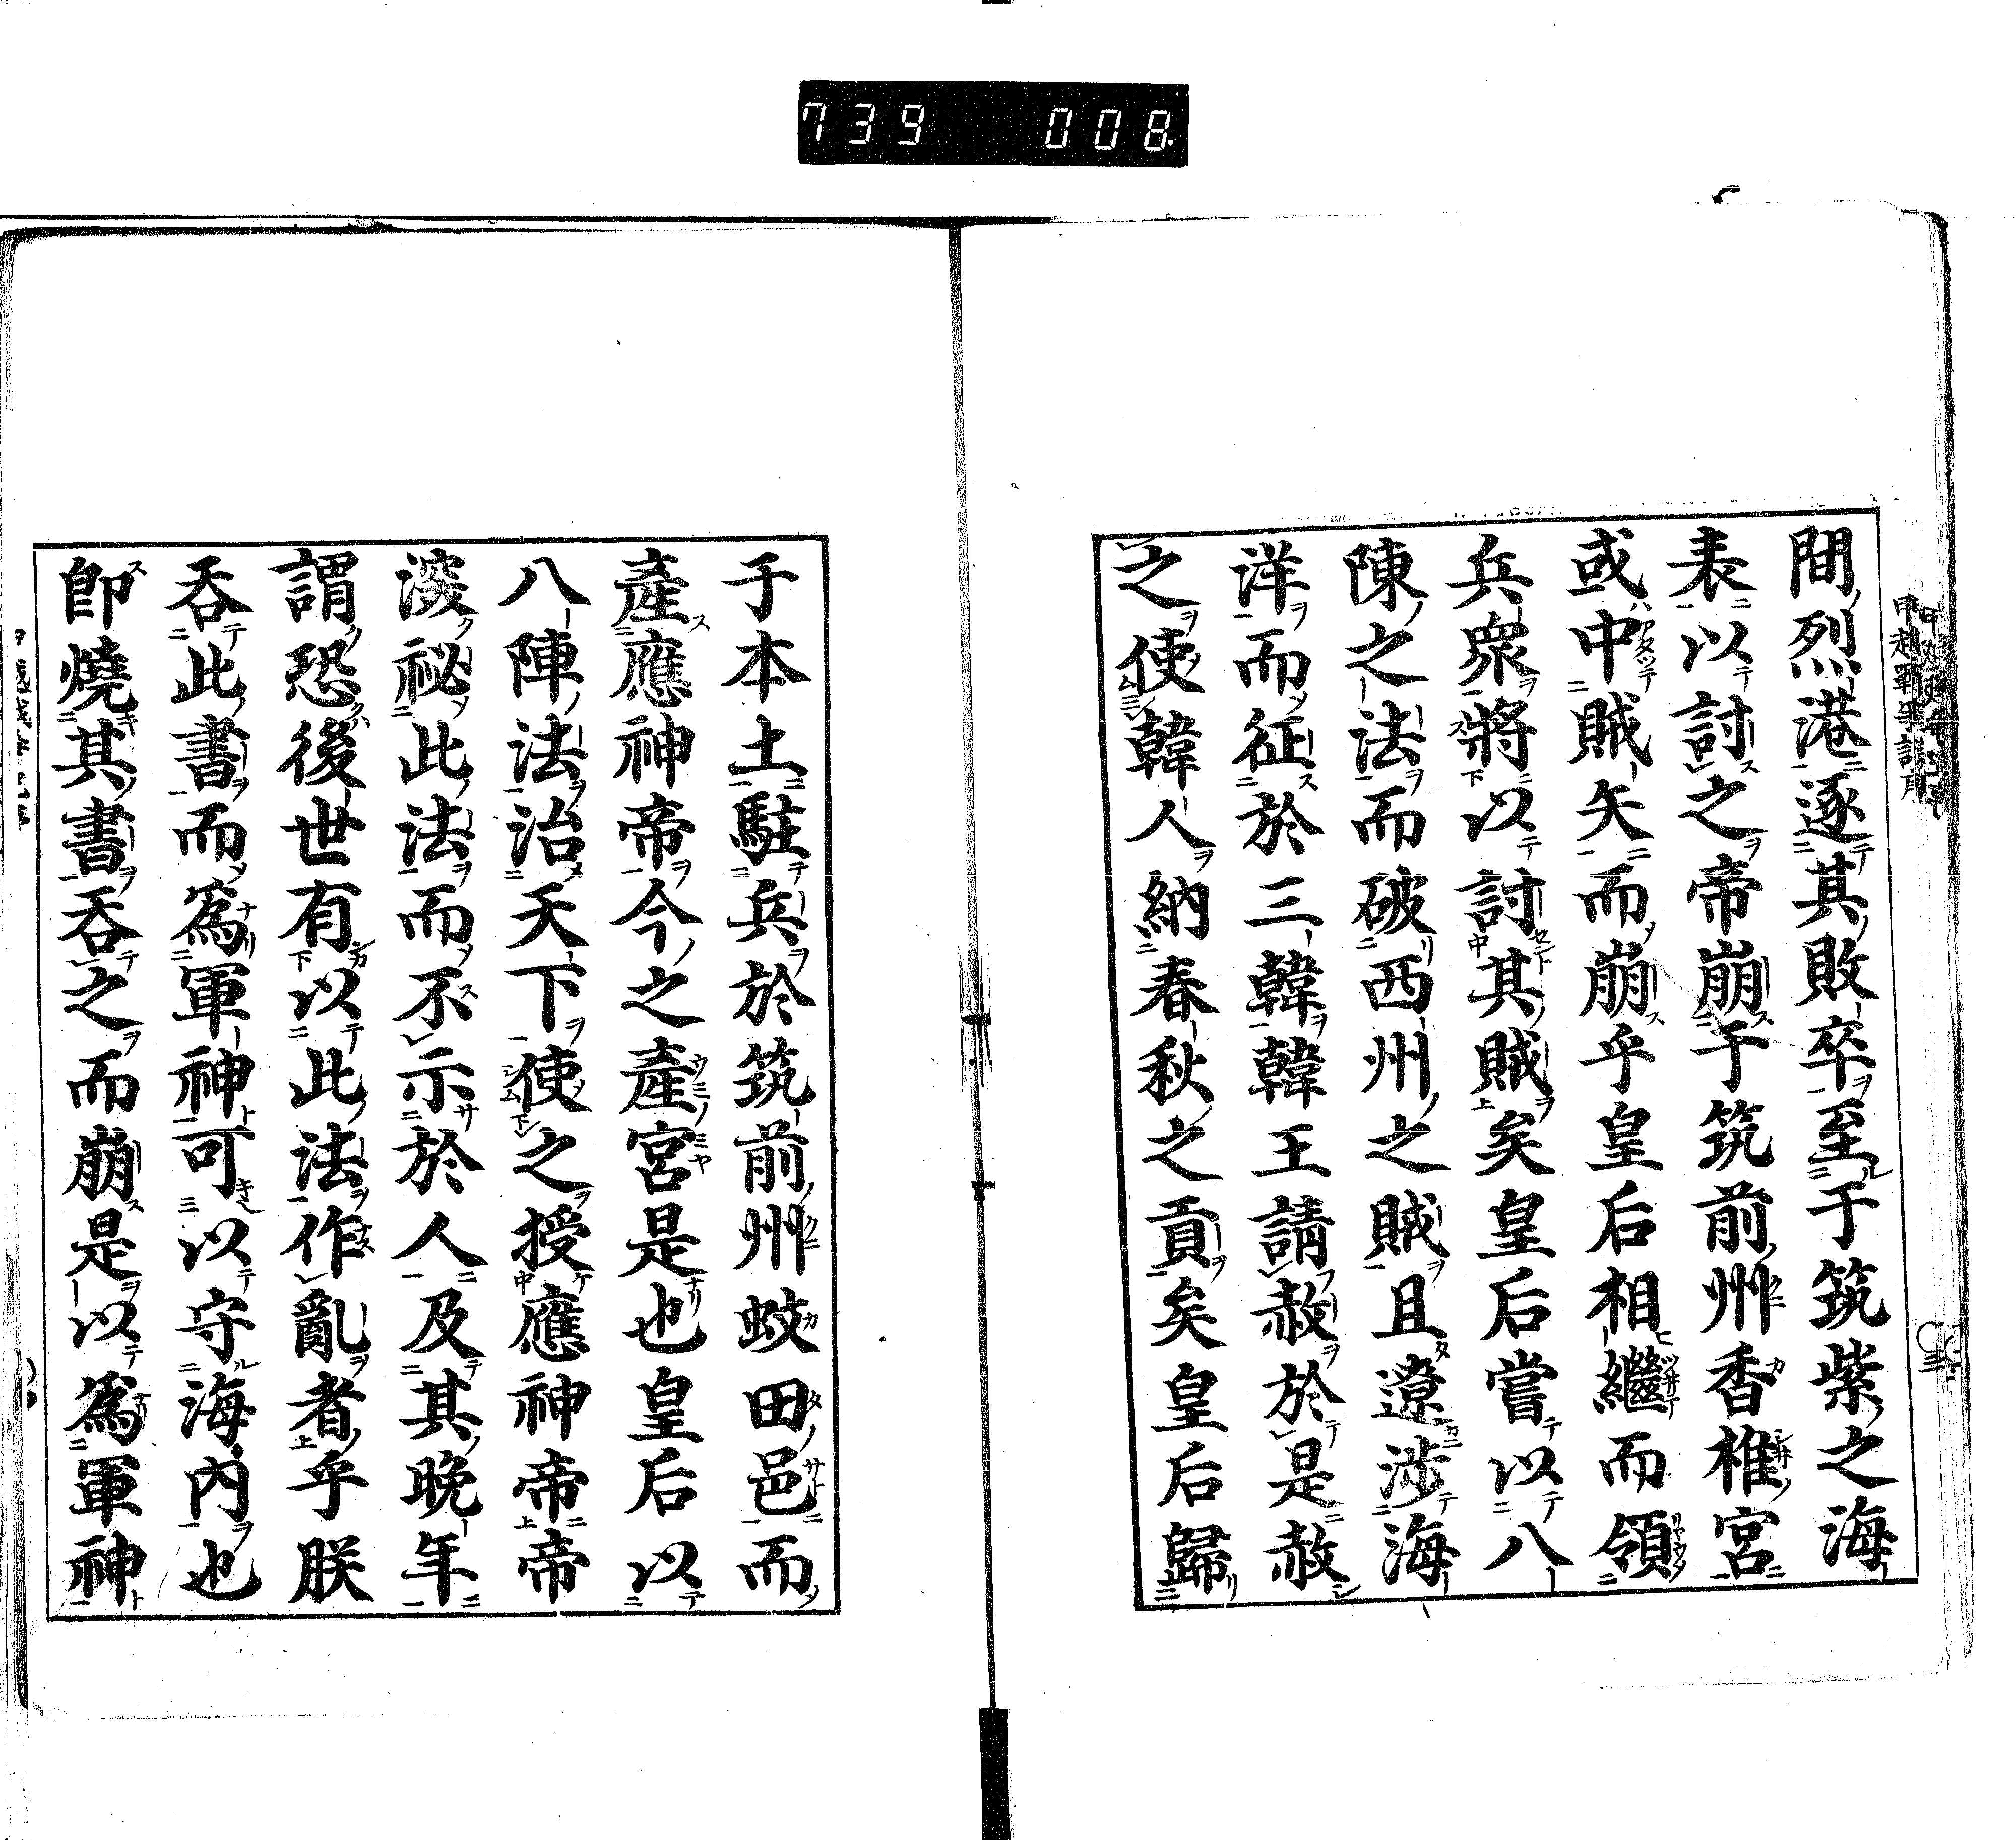 739 008
間烈港逐其敗卒至于筑紫之海
表以討之帝崩于筑前州香椎宮
或中賊矢而崩乎皇后相繼而領
兵衆將以討其賊矣皇后嘗以八
陳之法而破西州之賊且遼涉海
洋而征於三韓韓王請赦於是赦
之使韓人納春秋之貢矣皇后歸
于本土駐兵於筑前州蚊田邑而
產應神帝今之產宮是也皇后以
八陣法治天下使之授應神帝帝
深秘此法而不示於人及其晩年
謂恐後世有以此法作亂者乎朕
吞此書而爲軍神可以守海內也
卽燒其書吞之而崩是以爲軍神